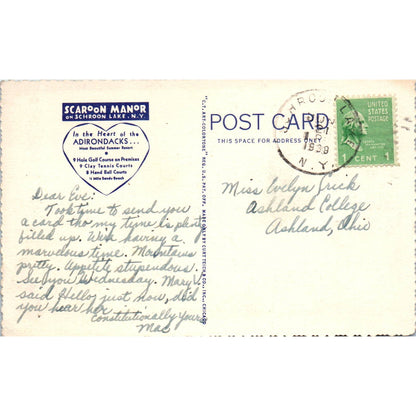 SCAROON MANOR
ON SCHROON LAKE, N.Y.
In the Heart of the
ADIRONDACKS...
Most Beautiful Summer Resort
9 Hole Golf Course on Premises
9 Clay Tennis Courts
8 Hand Ball Courts
½ Mile Sandy Beach
Dear Eve:
Took time to send you
a card tho my time is plenty
filled up. We're having a
marvelous time. Mountains
pretty. Appetite stupendous.
See you Wednesday. Mary
said Hello, just now, did
you hear her
Constitutionally Yours,
Mac
"C.T. ART-COLORTONE" REG. U.S. PAT. OFF. MADE ONLY BY CURT TEICH & CO., INC., CHICAGO
POST CARD
THIS SPACE FOR ADDRESS ONLY
SCHROON LAKE
1
1939
N.Y.
UNITED
STATES
POSTAGE
1 CENT 1
Miss Evelyn Frick
Ashland College
Ashland, Ohio